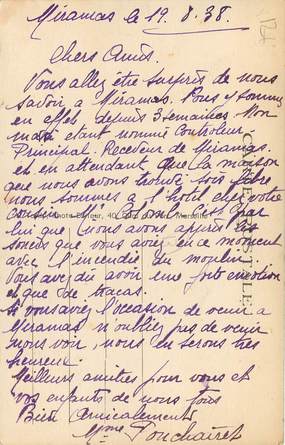 Miramas le 19.8.38.
Chers Amis.
Vous allez être surpris de nous
savoir à Miramas. Nous y sommes
en effet, depuis 3 semaines. Mon
mari étant nommé Controleur
Principal. Receveur de Miramas.
et en attendant que la maison
que nous avons trouvé soit libre
nous sommes à l'hôtel chez votre
cousin C'est par
lui que nous avons appris les
soucis que vous avez en ce moment
avec l'incendie du moulin.
Vous avez dû avoir une forte émotion
et que de tracas.
Si vous avez l'occasion de venir à
Miramas n'oubliez pas de venir
nous voir, nous en serons très
heureux.
Meilleurs amitiés pour vous et
vos enfants de nous tous
Bien Amicalement
Mme Pouchairet
CARTE POSTALE